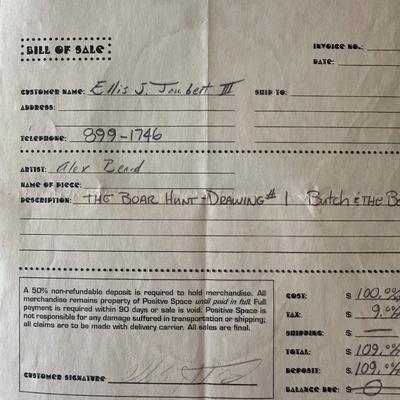 BILL OF SALE
INVOICE NO.:
DATE:
CUSTOMER NAME: Ellis J. Joubert III SHIP TO:
ADDRESS:
TELEPHONE: 899-1746
ARTIST: Alex Beard
NAME OF PIECE:
DESCRIPTION: THE BOAR HUNT - DRAWING #1 Butch & THE Bo
A 50% non-refundable deposit is required to hold merchandise. All
merchandise remains property of Positve Space until paid in full. Full
payment is required within 90 days or sale is void. Positive Space is
not responsible for any damage suffered in transportation or shipping;
all claims are to be made with delivery carrier. All sales are final.
CUSTOMER SIGNATURE
COST: $ 100.00
TAX: $ 9.00
SHIPPING: $ —
TOTAL: $ 109.00
DEPOSIT: $ 109.00
BALANCE DUE: $ 0